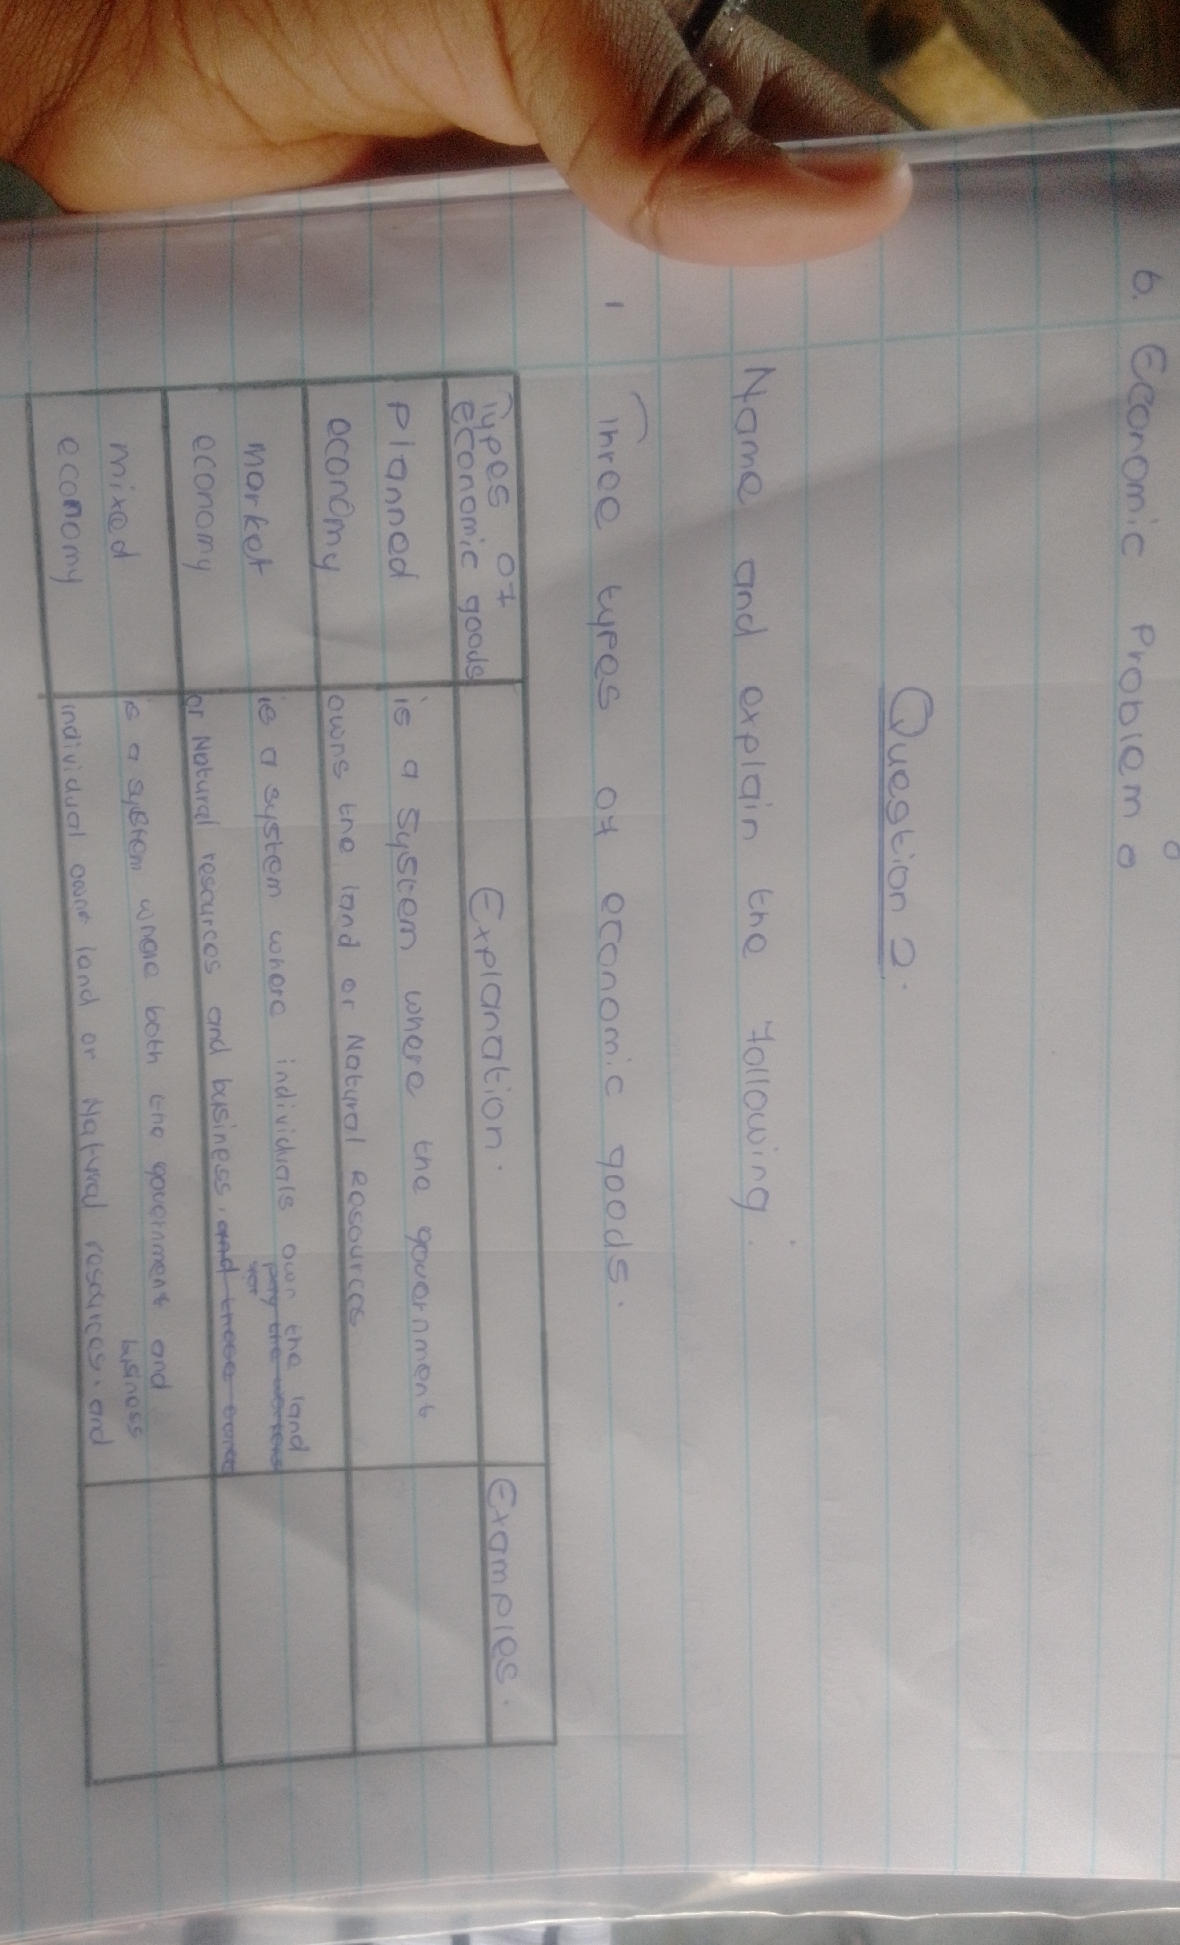 6. Economic Problem
Question 2.
Name and explain the following.
1 Three types of economic goods.
Types of economic goods
Explanation.
Examples.
Planned economy
is a system where the government
owns the land or Natural Resources
market economy
is a system where individuals own the land
or Natural resources and business.
mixed economy
is a system where both the government and
business
individual owns land or Natural resources. and